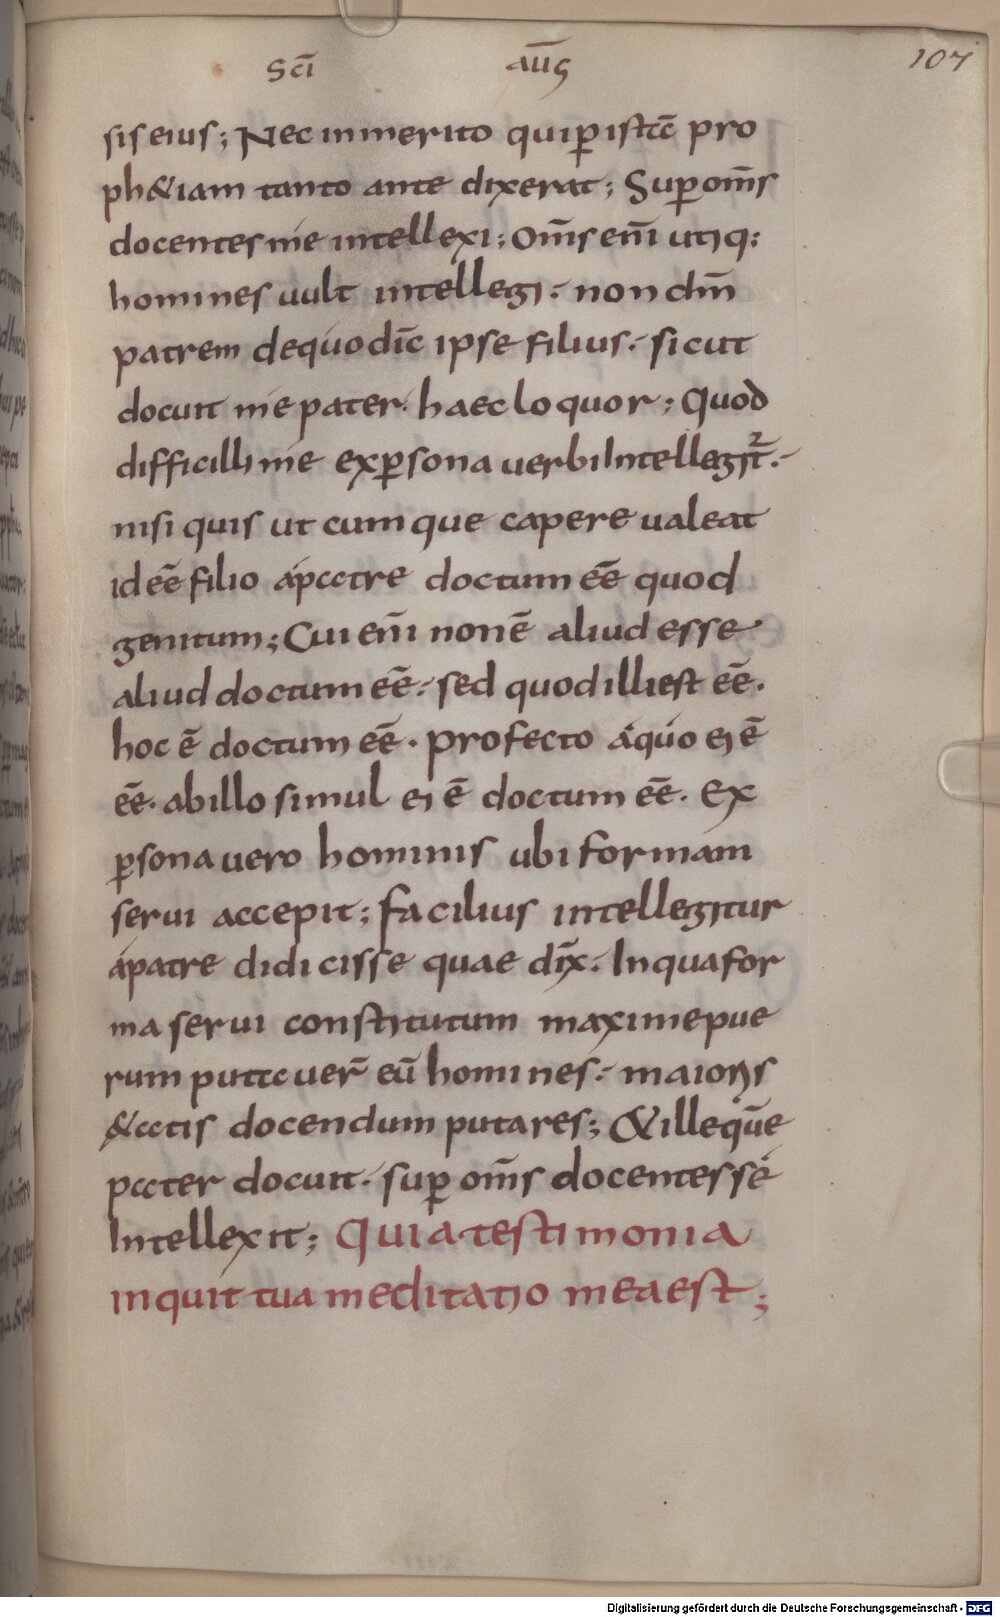 sc̄i aūg
107
sis eius; Nec inmerito qui ꝑ istā pro
ph&iam tanto ante dixerat; Suꝑ om̄s
docentes me intellexi; Om̄s eni̅ utiq:
homines uult intellegi. non dm̄
patrem de quo dic̄ ipse filius. sicut
docuit me pater. haec loquor; Quod
difficillime ex ꝑsona uerbi Intellegit̄.
nisi quis utcumque capere ualeat
id eē filio á patre doctum eē quod
genitum; Cui eni̅ non ē aliud esse
aliud doctum eē. sed quod illi est eē.
hoc ē doctum eē. profecto á quo ei ē
eē. ab illo simul ei ē doctum eē. Ex
ꝑsona uero hominis ubi formam
serui accepit; facilius intellegitur
á patre didicisse quae dix̄. In qua for
ma serui constitutum maxime pue
rum puta uer̄ eū homines. maioris
&atis docendum putares; & ille quē
pater docuit. suꝑ om̄s docentes sé
Intellexit; Quia testimonia
inquit tua meditatio mea est;
Digitalisierung gefördert durch die Deutsche Forschungsgemeinschaft - DFG